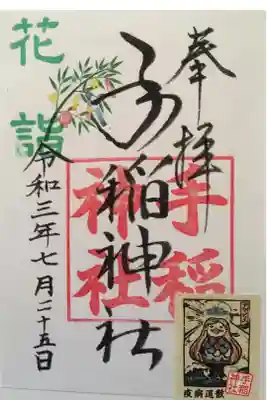 奉拝
手稲神社
手稲
神社
花詣
令和三年七月二十五日
疫病退散
手稲
神社